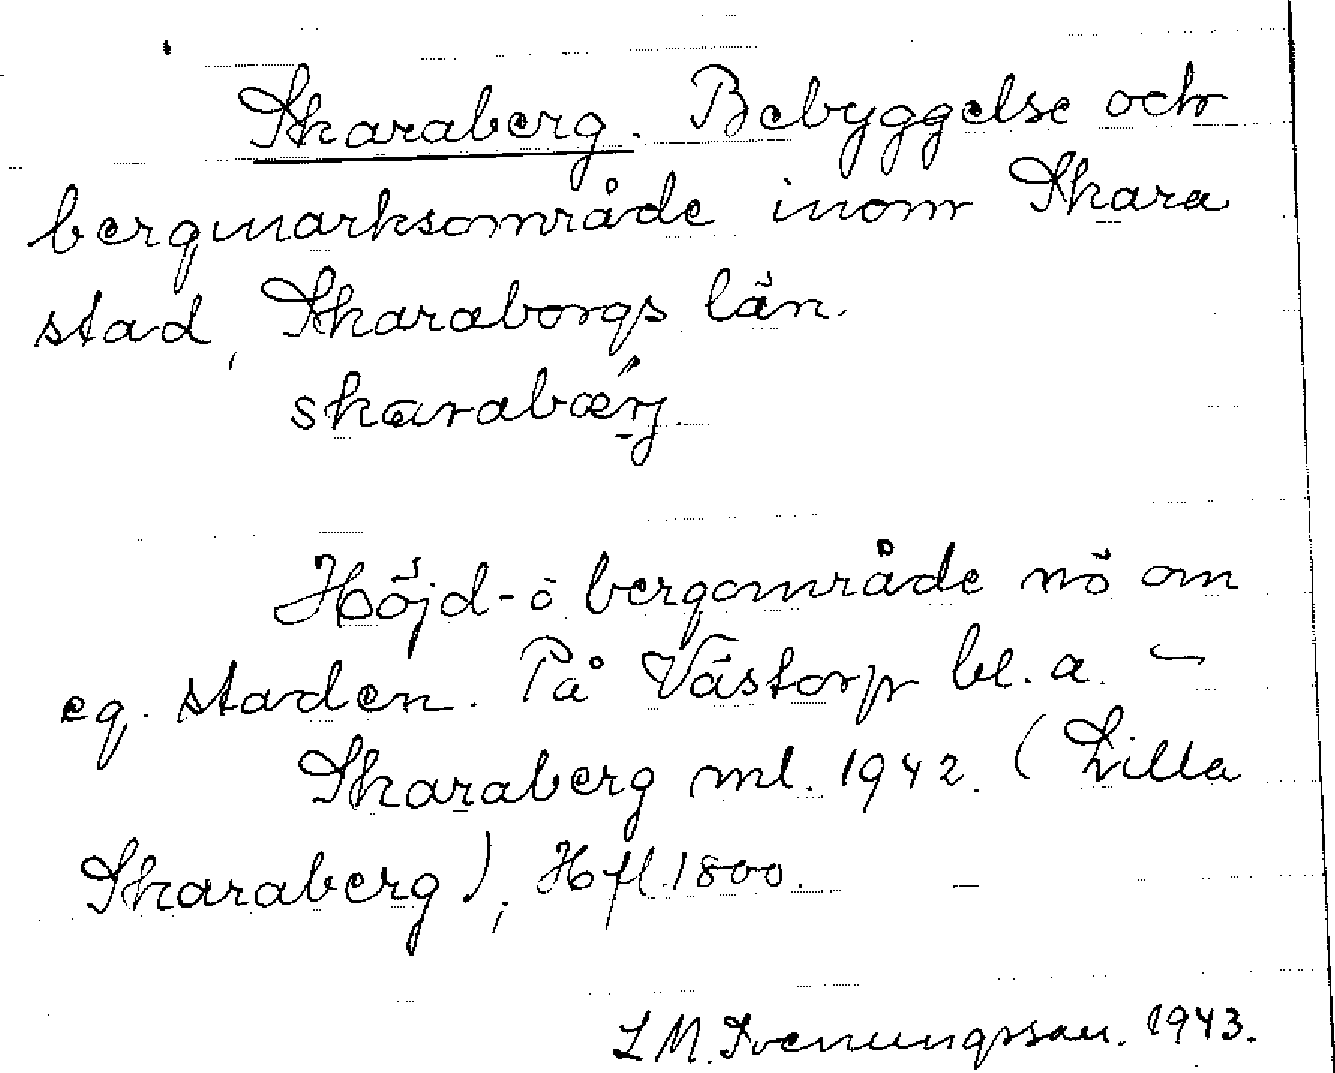 Skaraberg. Bebyggelse och
bergmarksområde inom Skara
stad, Skaraborgs län.
skarabær̀j.
Höjd- o bergområde nö om
eg. staden. På Västorp bl. a. –
Skaraberg ml. 1942. (Lilla
Skaraberg), Hfl 1800. –
L M. Svenungsson. 1943.